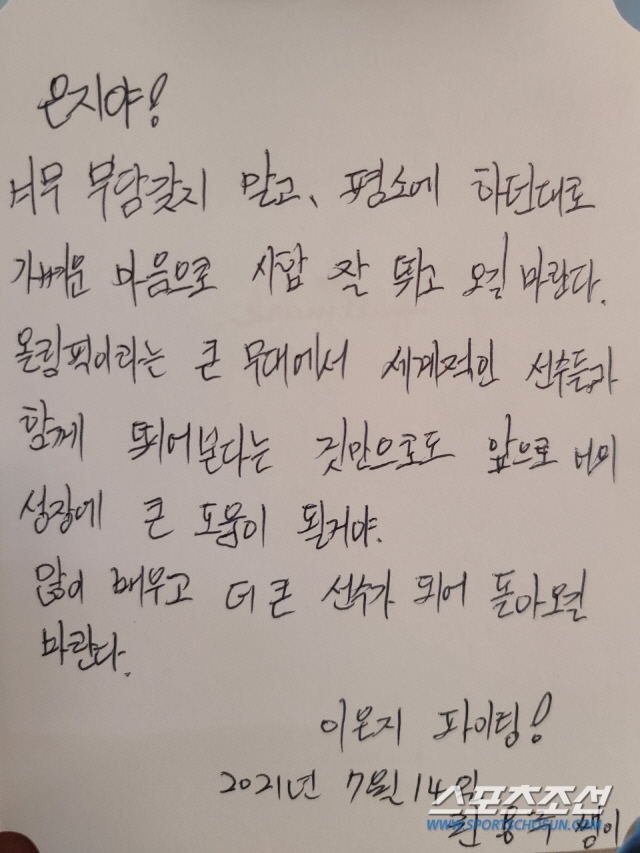 은지야!
너무 부담갖지 말고, 평소에 하던대로
가벼운 마음으로 시합 잘 뛰고 오길 바란다.
올림픽이라는 큰 무대에서 세계적인 선수들과
함께 뛰어본다는 것만으로도 앞으로 너의
성장에 큰 도움이 될거야.
많이 배우고 더 큰 선수가 되어 돌아오길
바란다.
이은지 파이팅!
2021년 7월 14일
스포츠조선
WWW.SPORTSCHOSUN.COM
쌤이